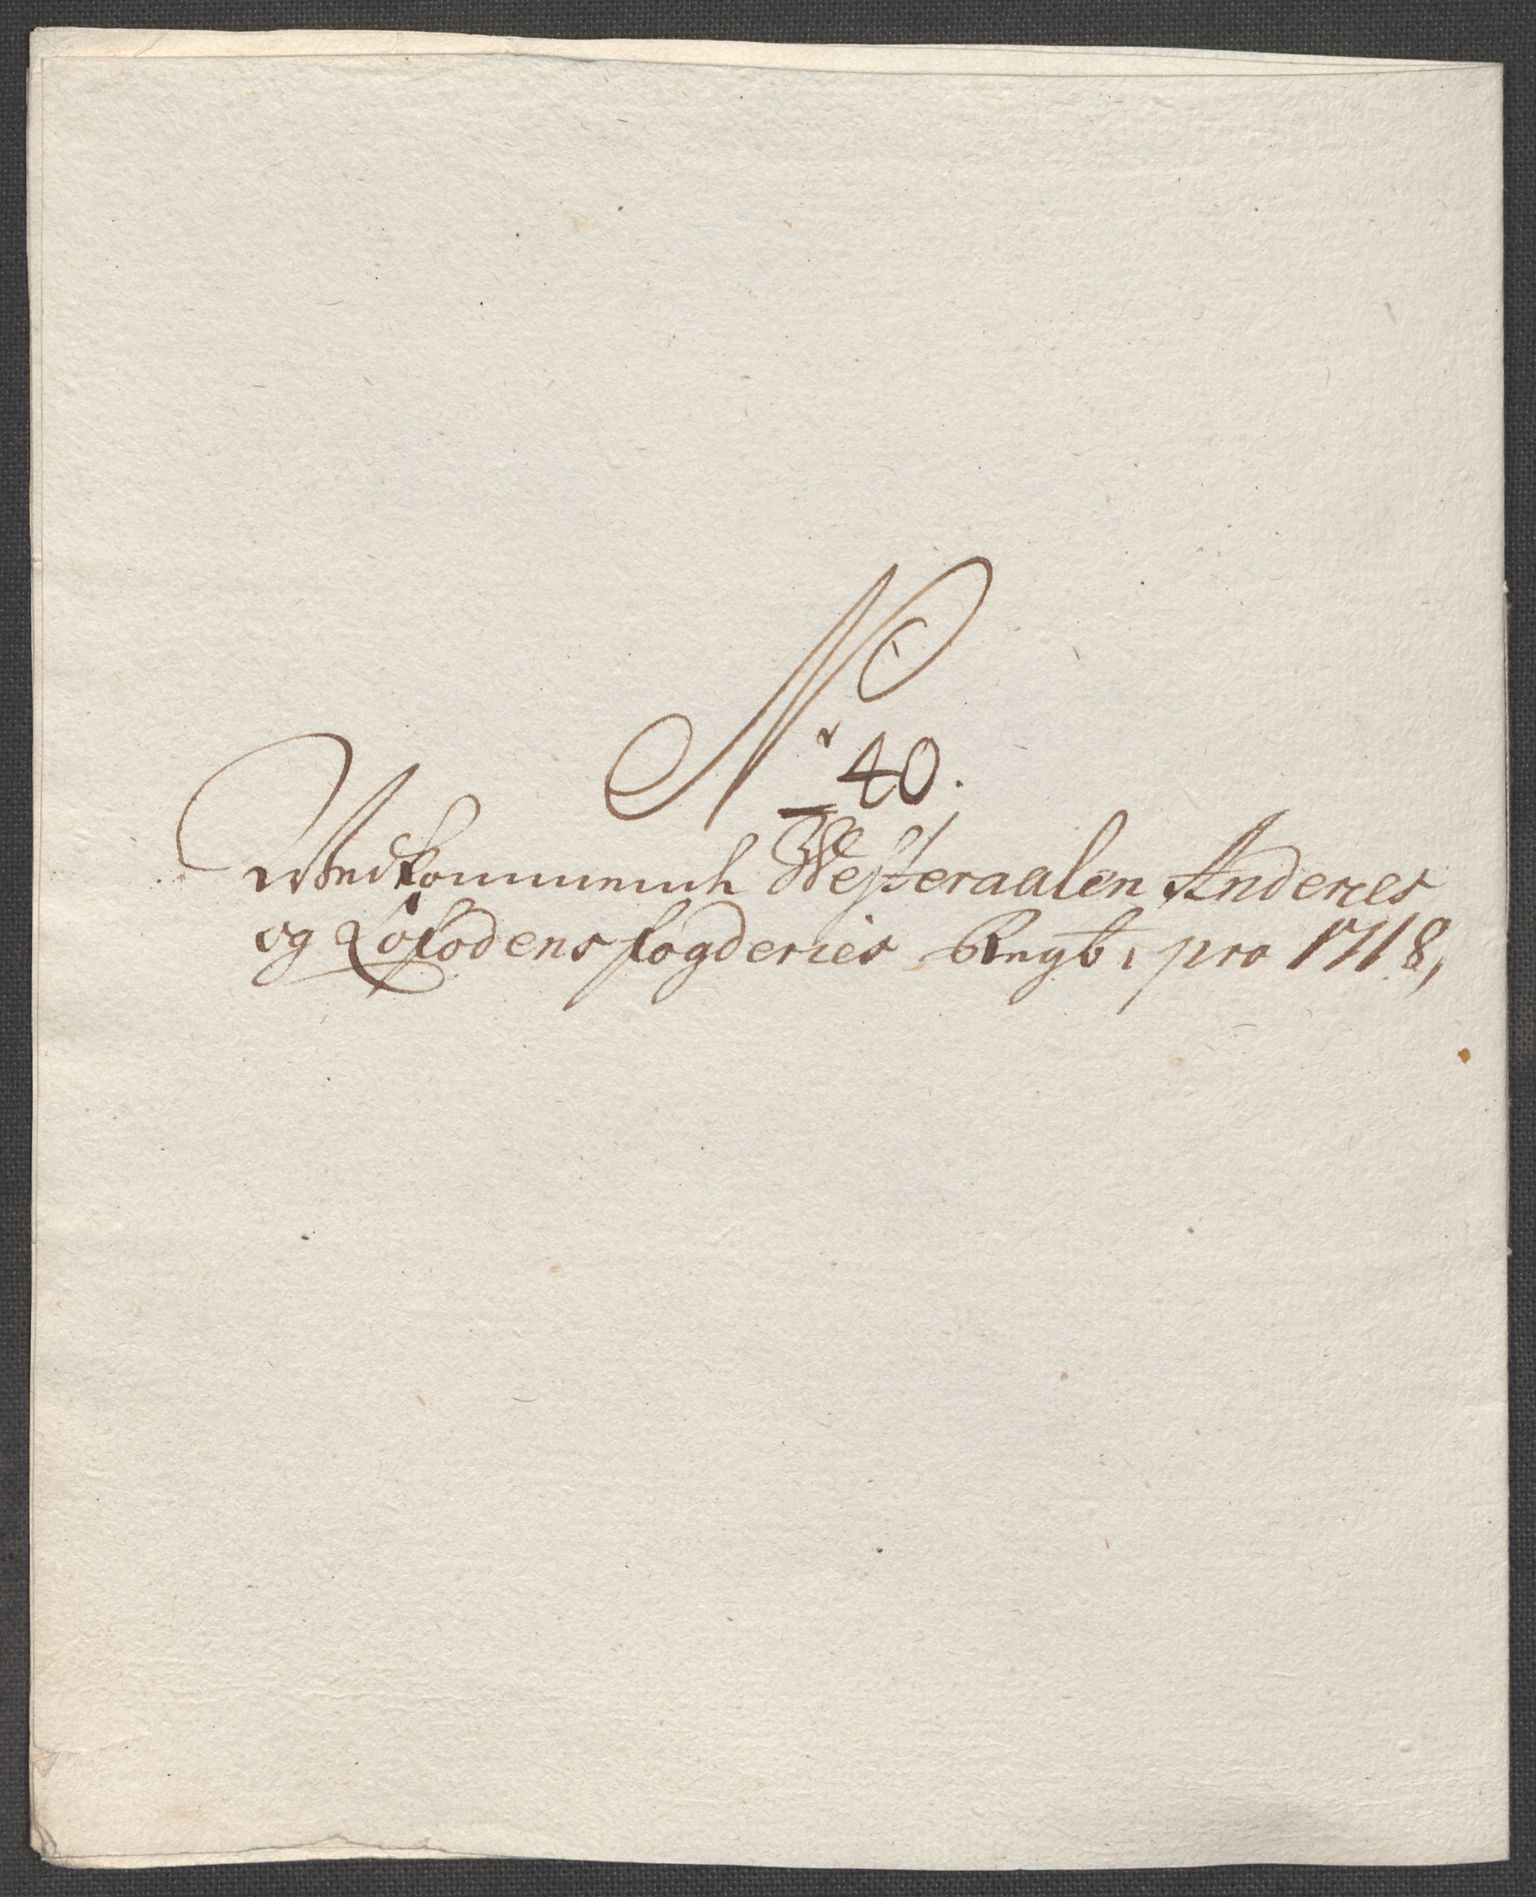 No
40.
Vedkommende Westeraalen Andenes
og Lofodens fogderies Regb, pro 1718,